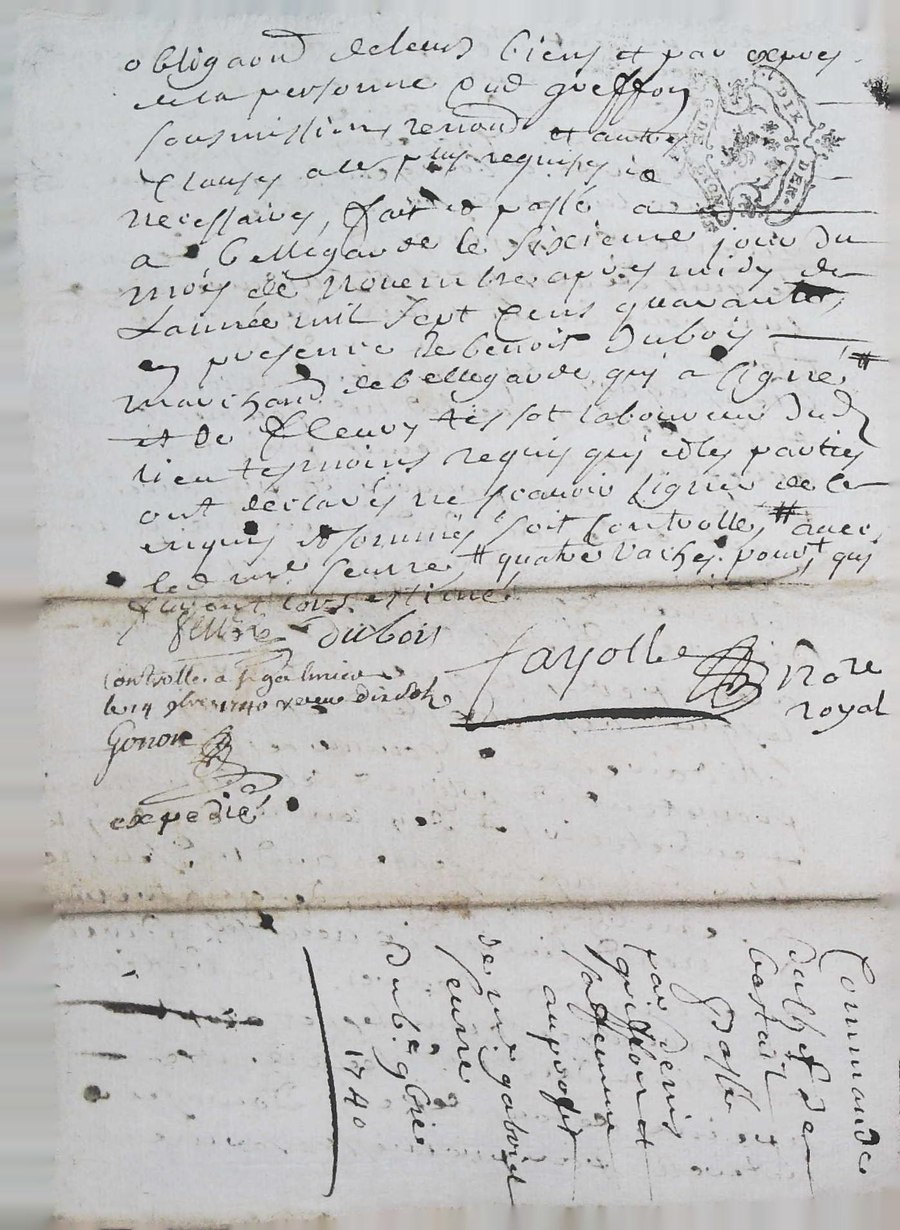 obligaon de leurs biens et par expres
de la personne dud greffon
sousmissions renond et autres
clauses a ce plus requises et
necessaires, fait et passé a
a bellegarde le sixieme jour du
mois de novembre apres midy de
L'année mil sept cens quarante,
en presence de benoist dubois
marchand de bellegarde qui a signé #
et de fleury tissot laboureur dud
lieu tesmoins requis qui et les parties
ont declarés ne scavoir signer de ce
enquis et sommés soit controllé # avec
led mr seurre # quatre vaches pour qui
estimé
Seurre dubois
fayolle Nore
royal
controllé a st galmier
le 14 9bre 1740 receu
Gonon
expedié
Commande
du chef de
bestail
passé
par denis
greffon et
sa femme
au profit
de mr gabriel
seurre
Du 6e 9bre
1740